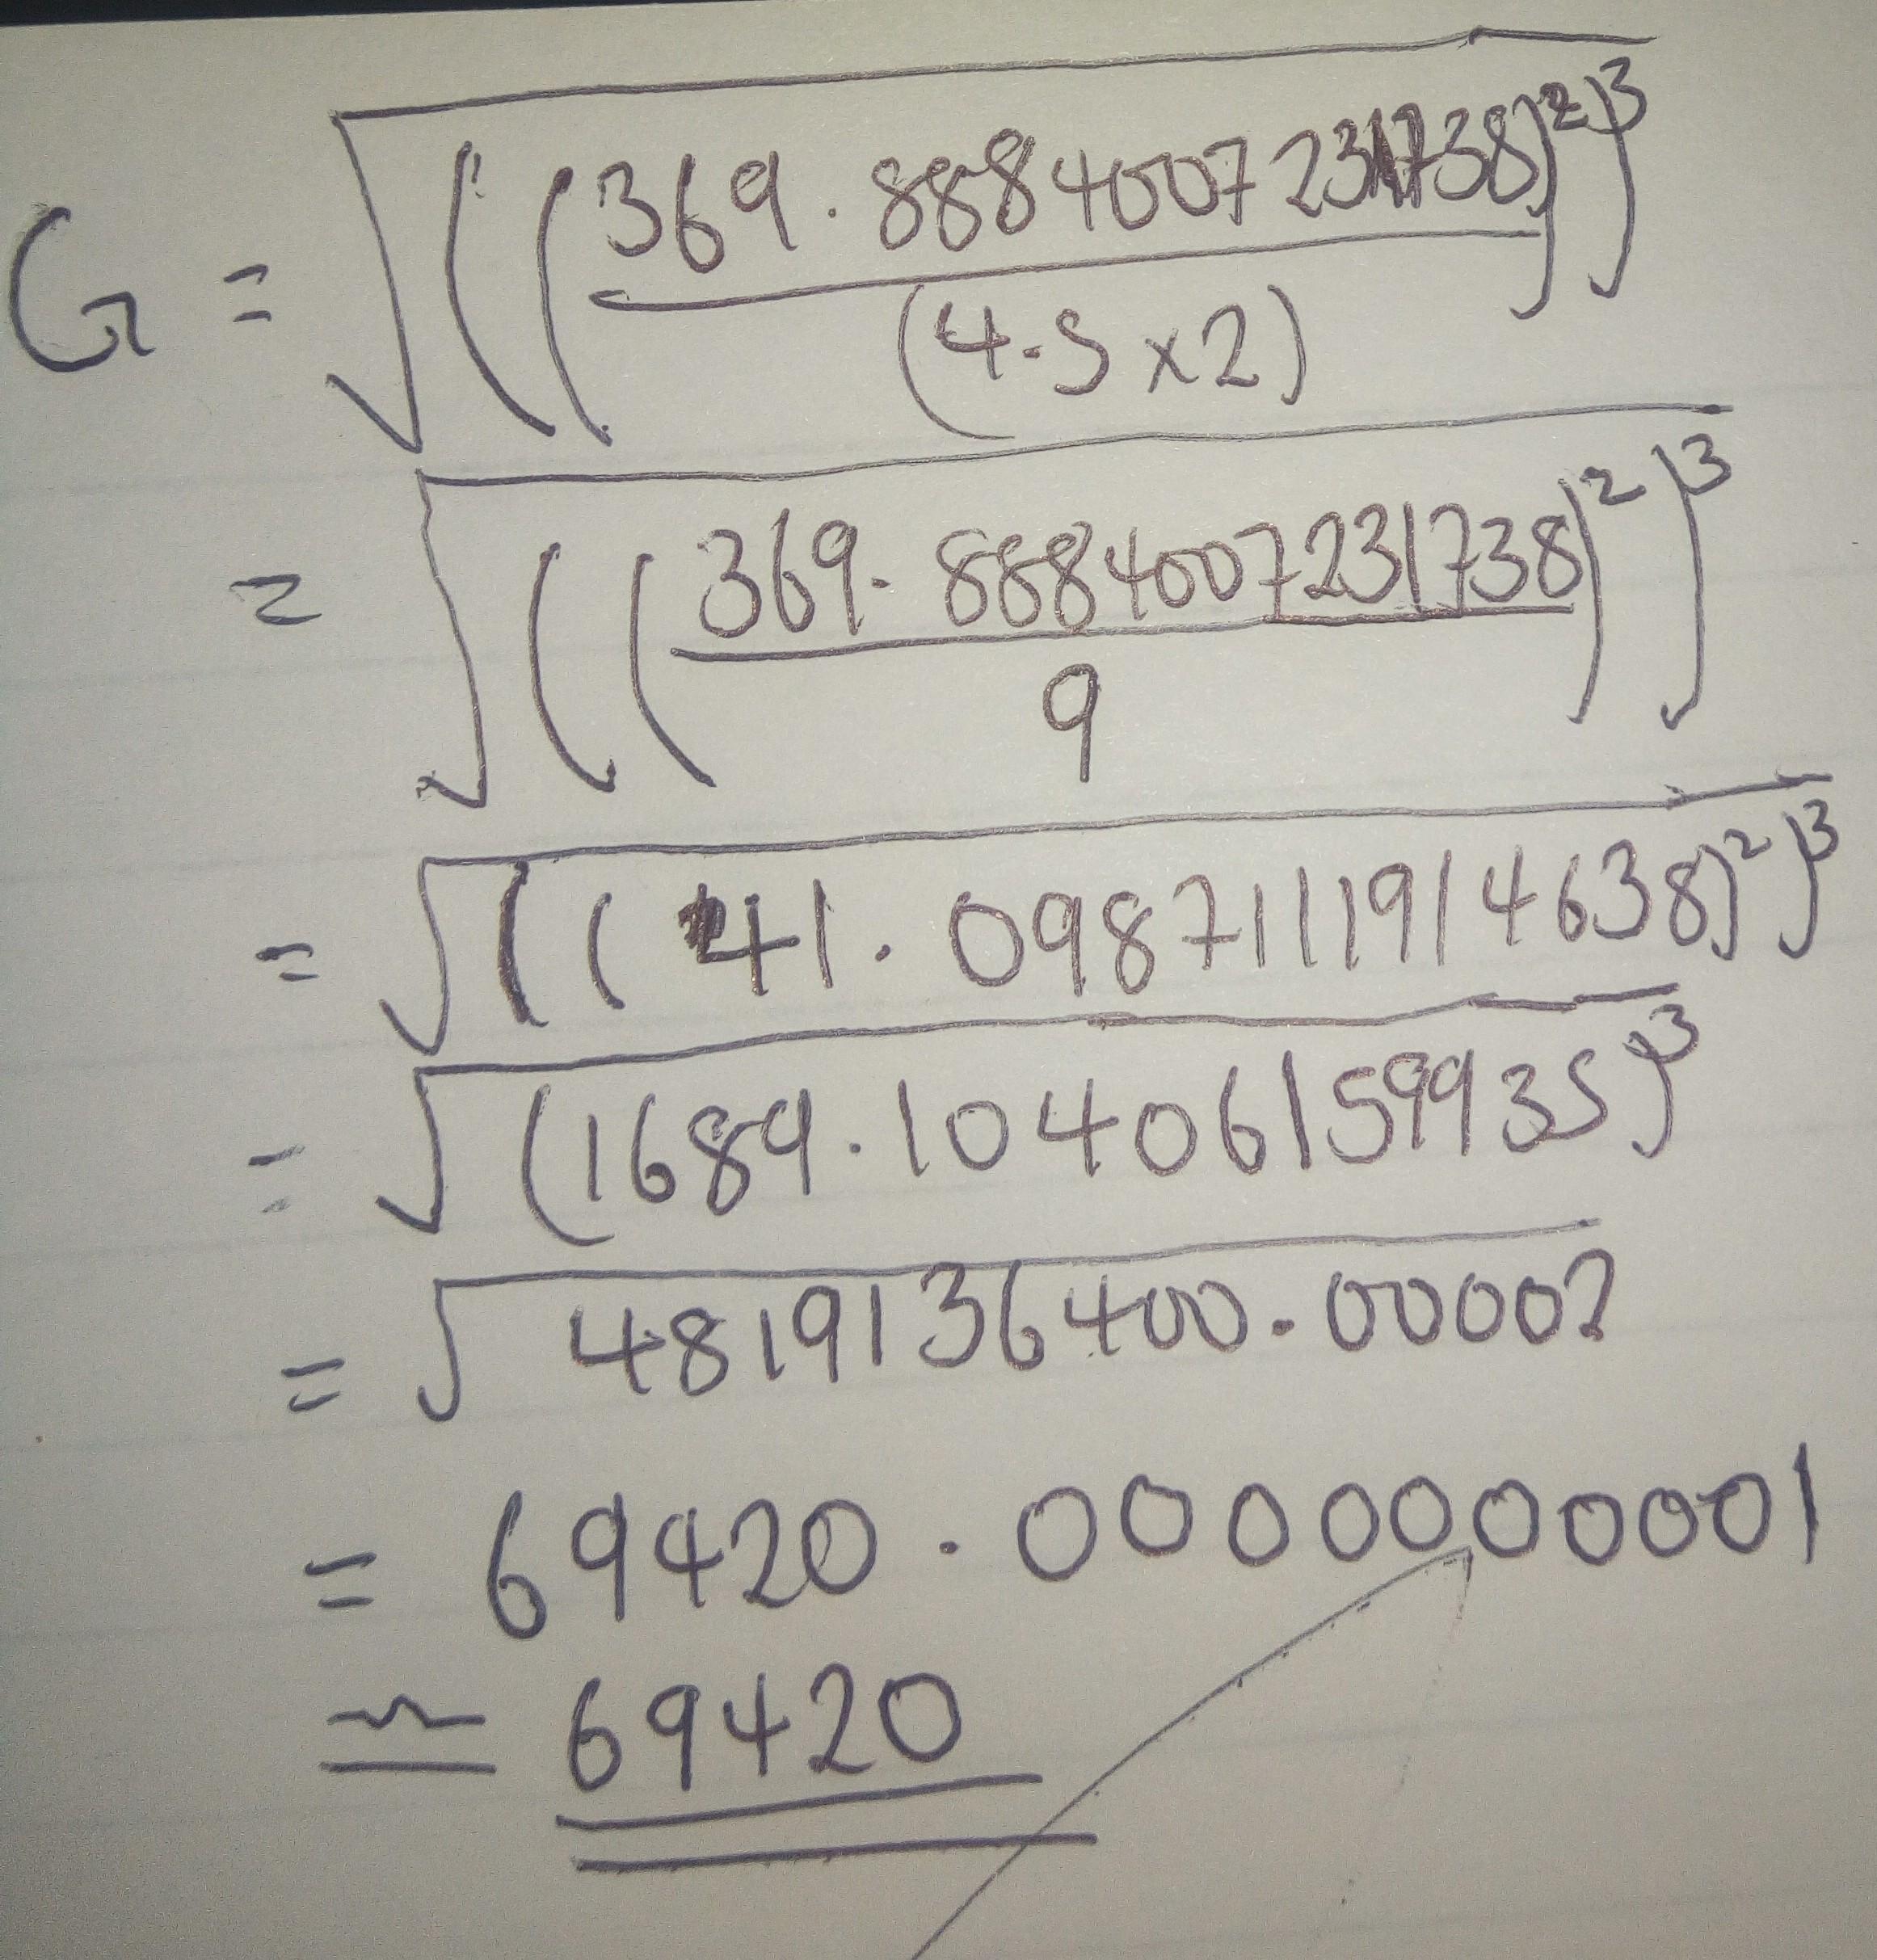 G = √(((369.8884007231738)/(4.5×2))²)³
= √((369.8884007231738/9)²)³
= √((41.0987111914638)²)³
= √(1689.10406159935)³
= √4819136400.00002
= 69420.0000000001
≅ 69420